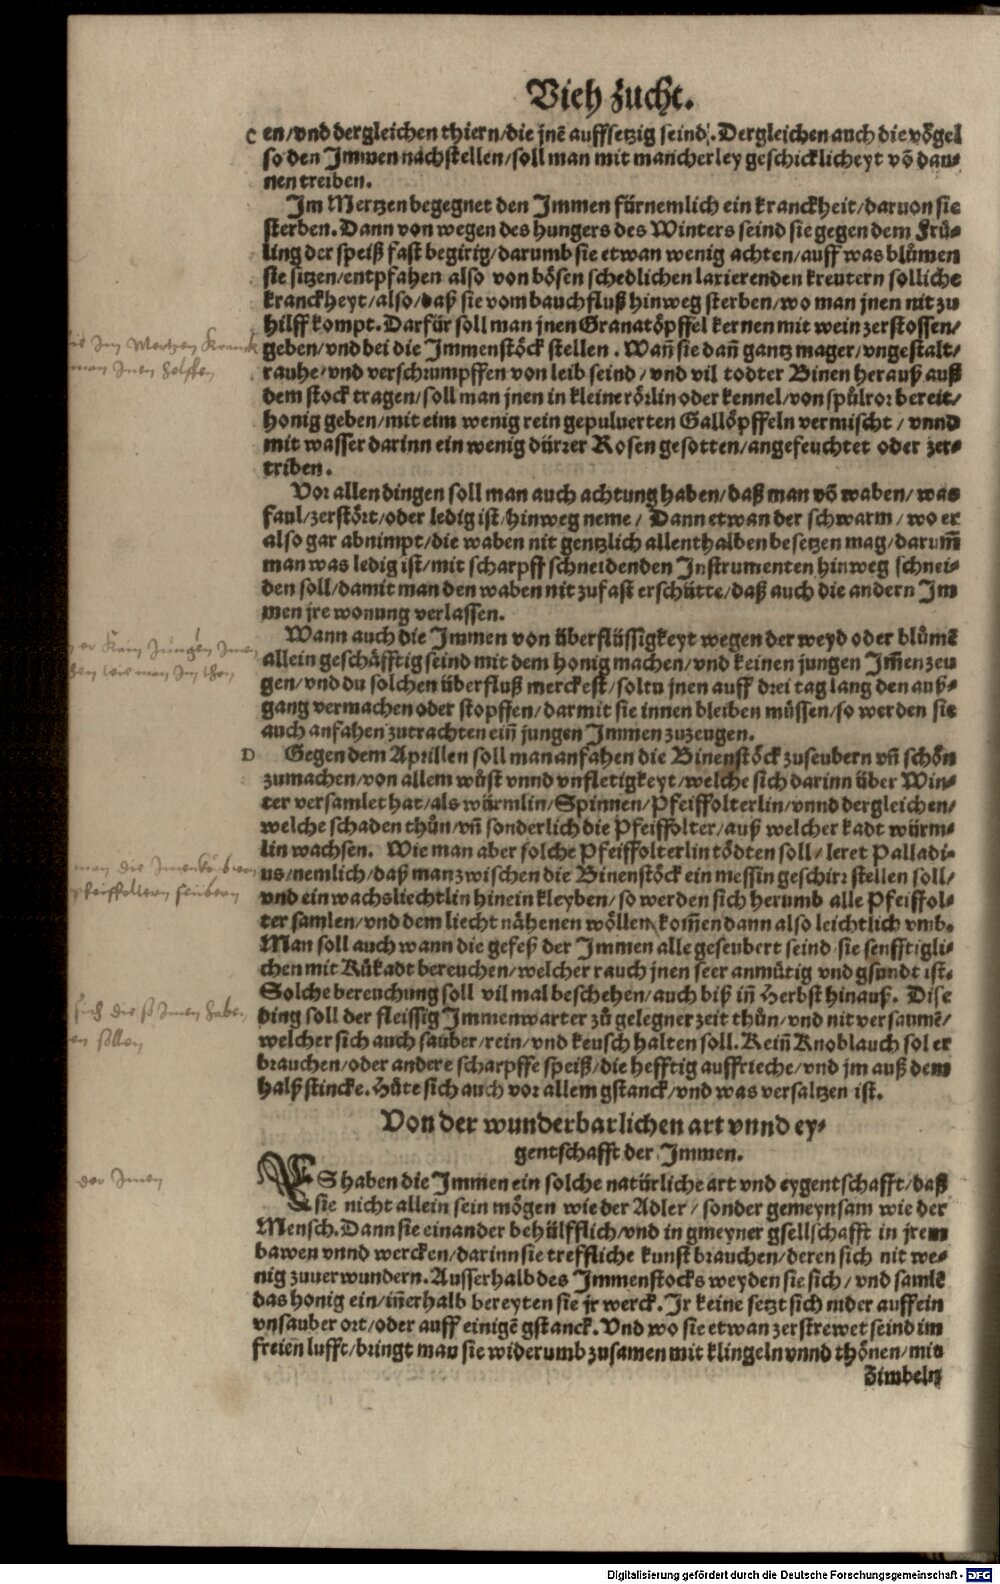 Vieh zucht.
C en/vnd dergleichen thiern/die jnē auffsetzig seind. Dergleichen auch die vögel
so den Immen nachstellen/soll man mit mancherley geschicklicheyt vō dan⸗
nen treiben.
Im Mertzen begegnet den Immen fürnemlich ein kranckheit/daruon sie
sterben. Dann von wegen des hungers des Winters seind sie gegen dem Frü⸗
ling der speiß fast begirig/darumb sie etwan wenig achten/auff was blůmen
sie sitzen/entpfahen also von bösen schedlichen laxierenden kreutern solliche
kranckheyt/also/daß sie vom bauchfluß hinweg sterben/wo man jnen nit zu
hilff kompt. Darfür soll man jnen Granatöpffel kernen mit wein zerstossen/
geben/vnd bei die Immenstöck stellen. Wañ sie dañ gantz mager/vngestalt/
rauhe/vnd verschrumpffen von leib seind/vnd vil todter Binen herauß auß
dem stock tragen/soll man jnen in kleine rörlin oder kennel/von spůlror bereit/
honig geben/mit eim wenig rein gepuluerten Gallöpffeln vermischt/vnnd
mit wasser darinn ein wenig dürrer Rosen gesotten/angefeuchtet oder zer⸗
triben.
Vor allen dingen soll man auch achtung haben/daß man vō waben/was
faul/zerstört/oder ledig ist/hinweg neme/Dann etwan der schwarm/wo er
also gar abnimpt/die waben nit gentzlich allenthalben besetzen mag/darum̄
man was ledig ist/mit scharpff schneidenden Instrumenten hinweg schnei⸗
den soll/damit man den waben nit zufast erschütte/daß auch die andern Im
men jre wonung verlassen.
Wann auch die Immen von überflüssigkeyt wegen der weyd oder blůmē
allein geschäfftig seind mit dem honig machen/vnd keinen jungen Im̄en zeu
gen/vnd du solchen überfluß merckest/soltu jnen auff drei tag lang den auß⸗
gang vermachen oder stopffen/darmit sie innen bleiben müssen/so werden sie
auch anfahen zutrachten eiñ jungen Immen zuzeugen.
D Gegen dem Aprillen soll man anfahen die Binenstöck zuseubern vñ schön
zumachen/von allem wůst vnnd vnfletigkeyt/welche sich darinn über Win⸗
ter versamlet hat/als würmlin/Spinnen/Pfeiffolterlin/vnnd dergleichen/
welche schaden thůn/vñ sonderlich die Pfeiffolter/auß welcher kadt würm⸗
lin wachsen. Wie man aber solche Pfeiffolterlin tödten soll/leret Palladi⸗
us/nemlich/daß man zwischen die Binenstöck ein messin geschirr stellen soll/
vnd ein wachsliechtlin hinein kleyben/so werden sich herumb alle Pfeiffol⸗
ter samlen/vnd dem liecht nähenen wöllen/kom̄en dann also leichtlich vmb.
Man soll auch wann die gefeß der Immen alle geseubert seind/sie senfftigli⸗
chen mit Kůkadt bereuchen/welcher rauch jnen seer anmütig vnd gsundt ist.
Solche bereuchung soll vil mal beschehen/auch biß iñ Herbst hinauß. Dise
ding soll der fleissig Immenwarter zů gelegner zeit thůn/vnd nit versaumē/
welcher sich auch sauber/rein/vnd keusch halten soll. Keiñ Knoblauch sol er
brauchen/oder andere scharpffe speiß/die hefftig auffrieche/vnd jm auß dem
halß stincke. Hüte sich auch vor allem gstanck/vnd was versaltzen ist.
Von der wunderbarlichen art vnnd ey⸗
gentschafft der Immen.
ES haben die Immen ein solche natürliche art vnd eygentschafft/daß
sie nicht allein sein mögen wie der Adler/sonder gemeynsam wie der
Mensch. Dann sie einander behülfflich/vnd in gmeyner gsellschafft in jrem
bawen vnnd wercken/darinn sie treffliche kunst brauchen/deren sich nit we⸗
nig zuuerwundern. Ausserhalb des Immenstocks weyden sie sich/vnd samlē
das honig ein/iñerhalb bereyten sie jr werck. Ir keine setzt sich nider auff ein
vnsauber ort/oder auff einigē gstanck. Vnd wo sie etwan zerstrewet seind im
freien̄ lufft/bringt man sie widerumb zusamen mit klingeln vnnd thönen/mit
Zimbeln
im Mertzen Kranck
man Inen helffen
Kein Jungen Imen
wie man Im thon
man die Imenkörb von
pfeiffolltern seübern
sich die so Imen haben
sollen
der Imen
Digitalisierung gefördert durch die Deutsche Forschungsgemeinschaft - DFG